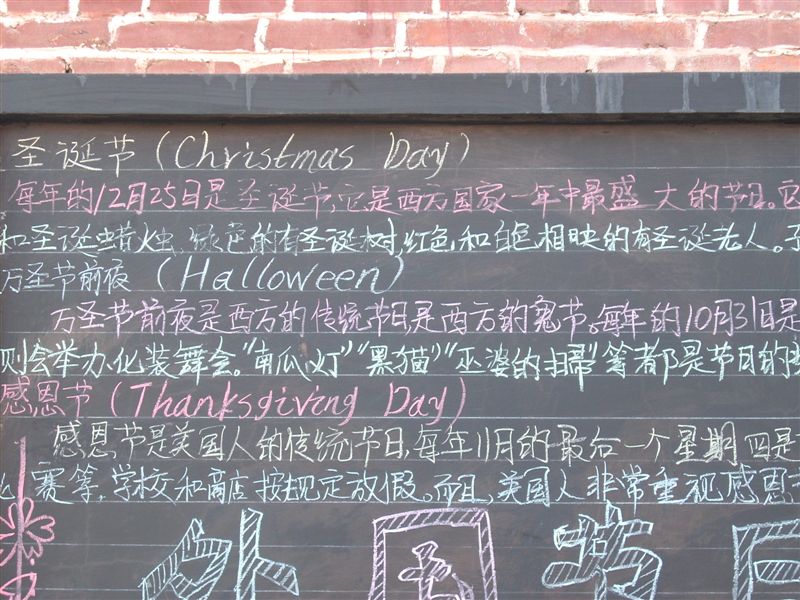 圣诞节(Christmas Day)
每年的12月25日是圣诞节,它是西方国家一年中最盛大的节日。它
和圣诞蜡烛,绿色的有圣诞树,红色,和白色相映的有圣诞老人。
万圣节前夜(Halloween)
万圣节前夜是西方的传统节日,是西方的鬼节,每年的10月31日是
则会举办化装舞会。“南瓜灯”“黑猫”“巫婆的扫帚”等都是节日的
感恩节(Thanksgiving Day)
感恩节是美国人的传统节日,每年11月的最后一个星期四是
赛等,学校和商店按规定放假。而且,美国人非常重视感恩
外国节日